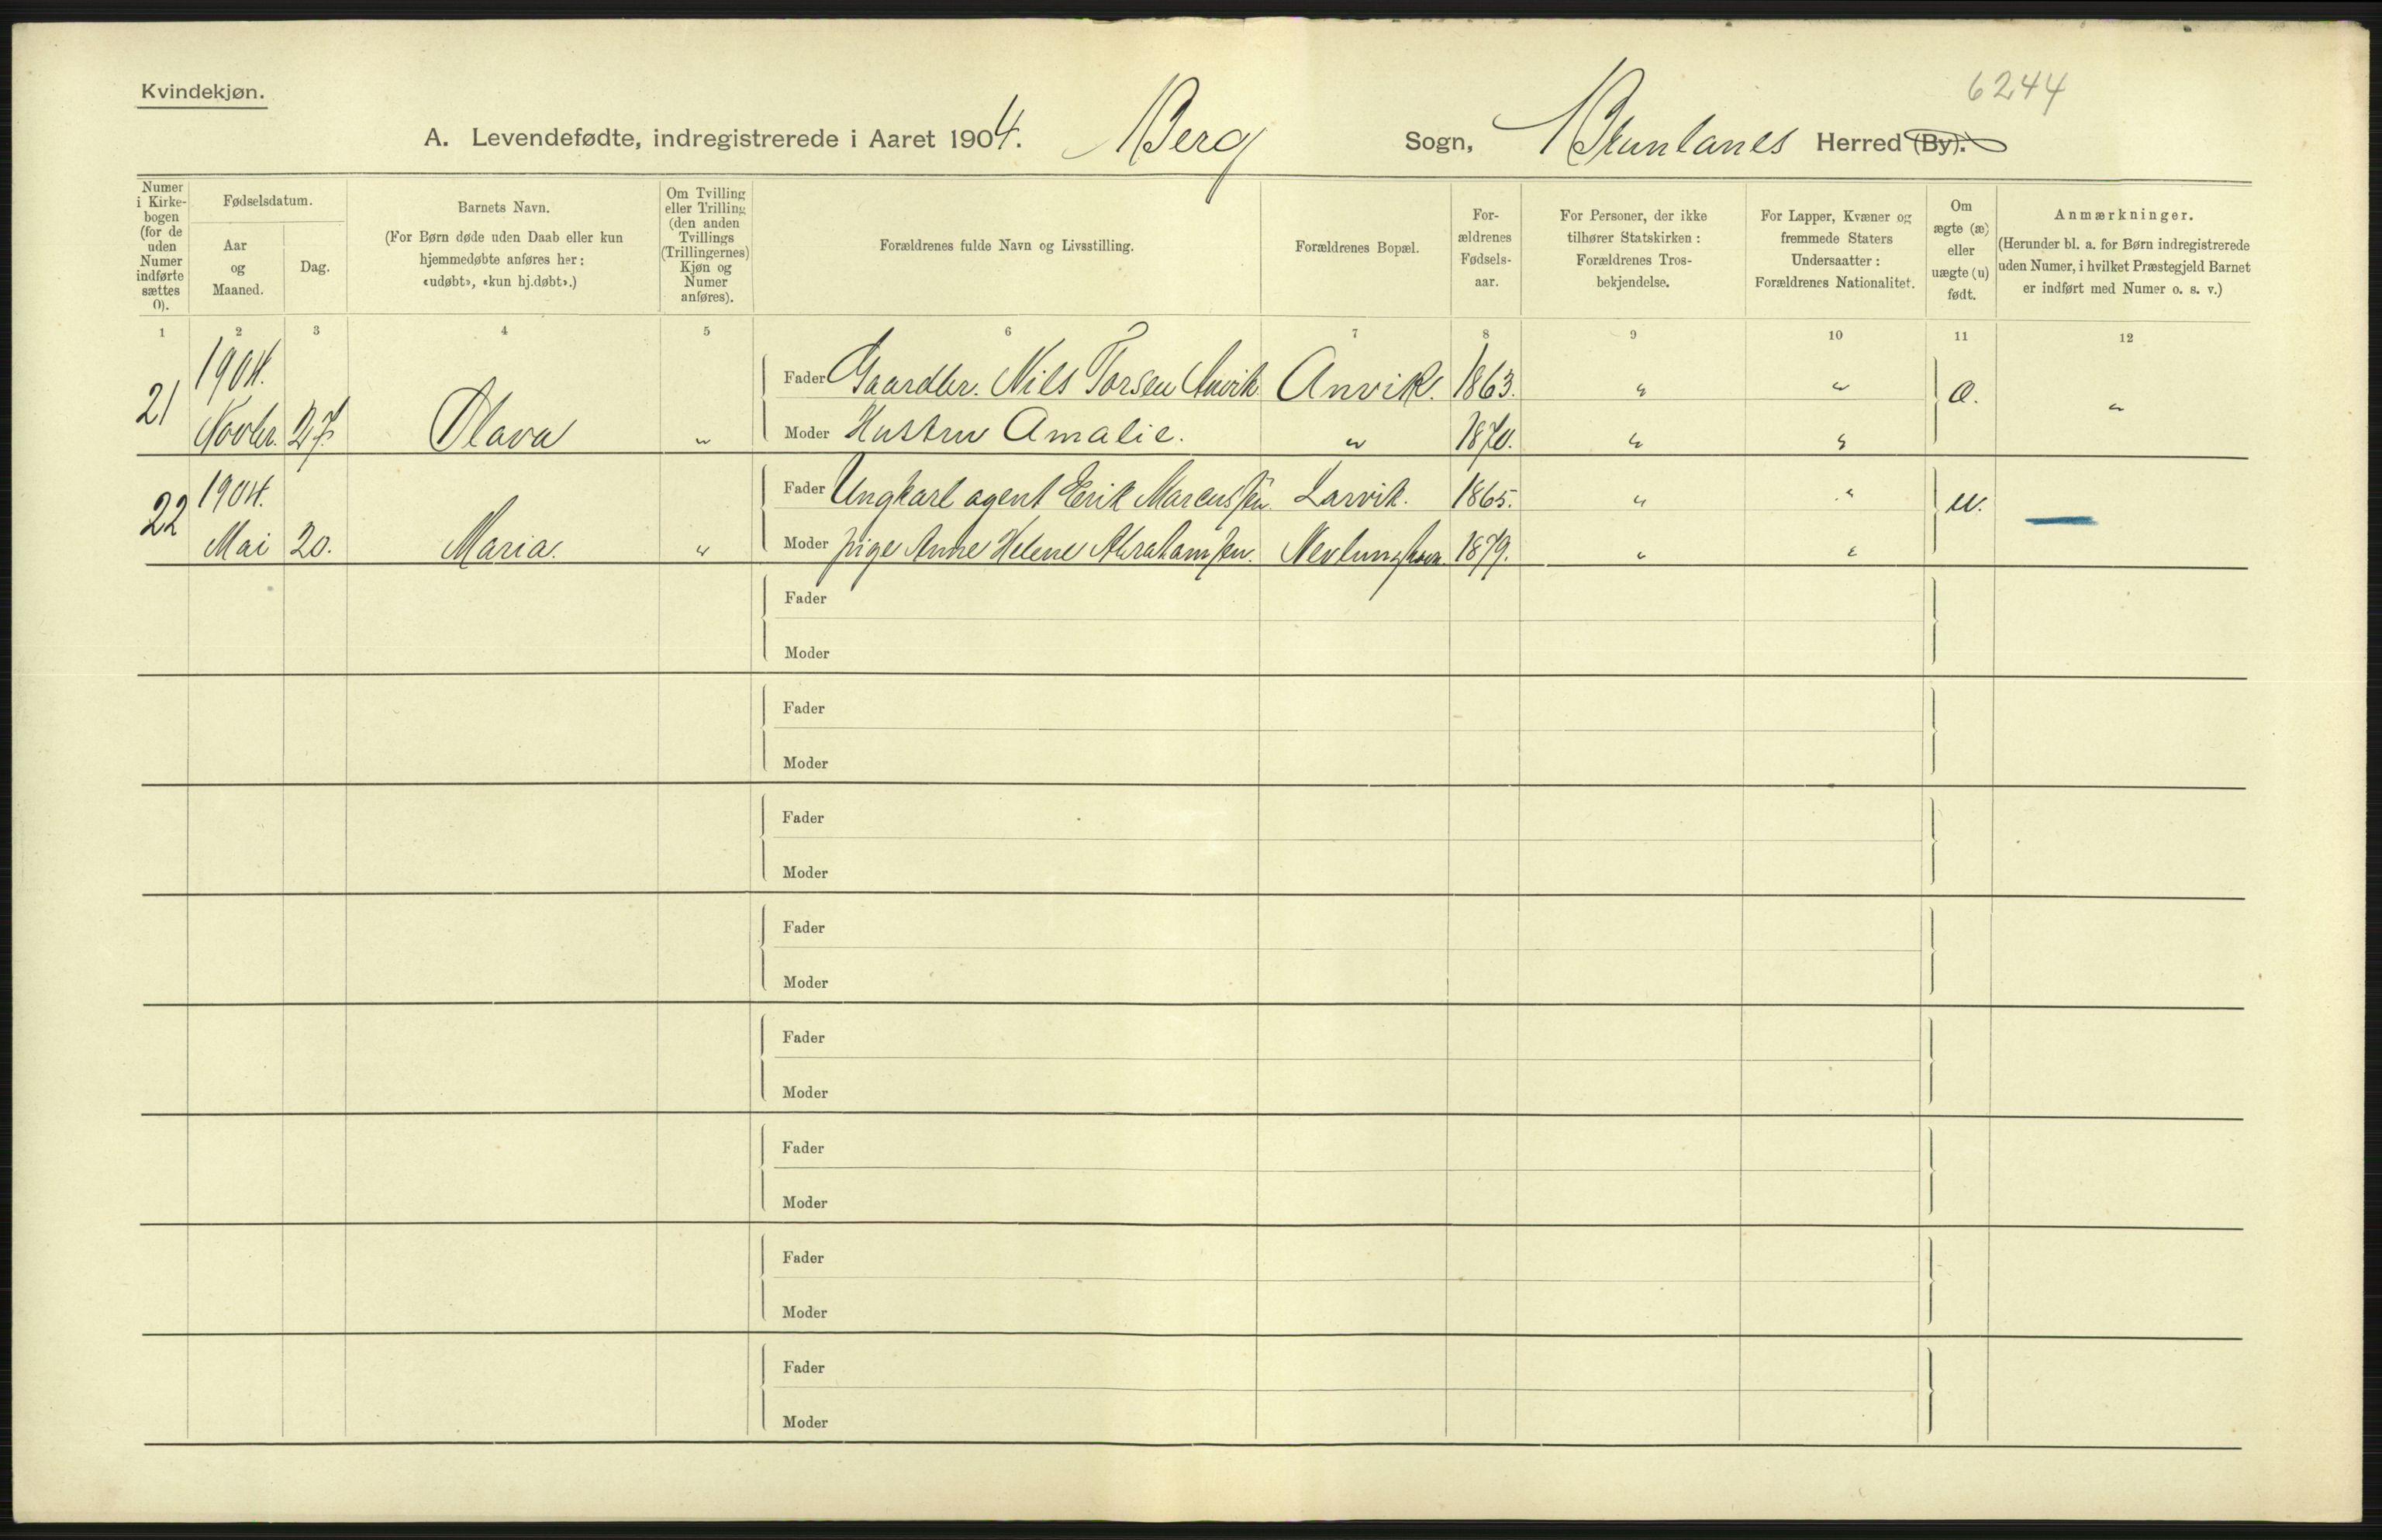 Kvindekjøn.
6244
A. Levendefødte, indregistrerede i Aaret 1904. Berg Sogn, Brunlanes Herred (By).
Numer i Kirke-bogen (for de uden Numer indførte sættes 0).
Fødselsdatum.
Aar og Maaned.
Dag.
Barnets Navn.
(For Børn døde uden Daab eller kun
hjemmedøbte anføres her:
«udøbt», «kun hj.døbt».)
Om Tvilling
eller Trilling
(den anden
Tvillings
(Trillingernes)
Kjøn og
Numer
anføres).
Forældrenes fulde Navn og Livsstilling.
Forældrenes Bopæl.
For-
ældrenes
Fødsels-
aar.
For Personer, der ikke
tilhører Statskirken:
Forældrenes Tros-
bekjendelse.
For Lapper, Kvæner og
fremmede Staters
Undersaatter:
Forældrenes Nationalitet.
Om
ægte (æ)
eller
uægte (u)
født.
Anmærkninger.
(Herunder bl. a. for Børn indregistrerede
uden Numer, i hvilket Præstegjeld Barnet
er indført med Numer o. s. v.)
1 2 3 4 5 6 7 8 9 10 11 12
21 1904. Novbr. 27. Olava "
Fader Gaardbr. Nils Torsen Anvik Anvik. 1863. " " æ. "
Moder Hustru Amalie. " 1870. " "
22 1904. Mai 20. Maria. "
Fader Ungkarl agent Erik Marcussen. Larvik. 1865. " " u.
Moder pige Anne Helene Abrahamsen. Nevlunghavn. 1879. " "
Fader
Moder
Fader
Moder
Fader
Moder
Fader
Moder
Fader
Moder
Fader
Moder
Fader
Moder
Fader
Moder